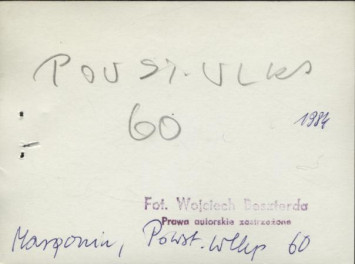 POWST. WLKP
60
1984
Fot. Wojciech Beszterda
Prawa autorskie zastrzeżone
Margonin, Powst. Wlkp 60